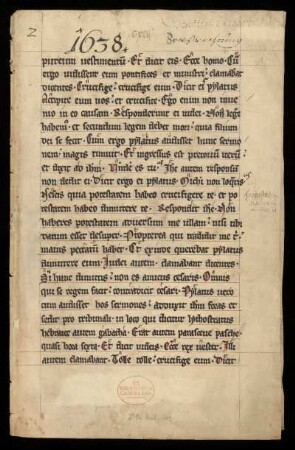 2
1638.
pureum uestimentū. Et dicit eis. Ecce homo. Cū
ergo uidissent eum pontifices et ministri: clamabāt
dicentes. Crucifige: crucifige eum. Dicit eis pylatus
Accipite eum uos: et crucifigite. Ego enim non inue
nio in eo causam. Responderunt ei iudei. Nos legē
habem᷒: et secundum legem debet mori: quia filium
dei se fecit. Cum ergo pylatus audisset hunc sermo
nem: magis timuit. Et ingressus est pretorium iterū:
et dixit ad ihm. Unde es tu: Ihc autem responsū
non dedit ei. Dicit ergo ei pylatus. Michi non loq̄ris
Nescis quia potestatem habeo crucifigere te: et po
testatem habeo dimittere te. Respondit ihc. Non
haberes potestatem aduersum me ullam: nisi tibi
datum esset desuper. Propterea qui tradidit me t̄:
maius peccatū habet. Et exinde querebat pylatus
dimittere eum. Iudei autem clamabant dicentes.
Si hunc dimittis: non es amicus cesaris. Omnis
qui se regem facit: contradicit cesari. Pylatus uero
cum audisset hos sermones: adduxit ihm foras et
sedit pro tribunali: in loco qui dicitur lychostratus
hebraice autem gabatha. Erat autem parasceue pasche
quasi hora sexta. Et dicit iudeis. Ecce rex uester. Illi
autem clamabant. Tolle tolle: crucifige eum. Dicit